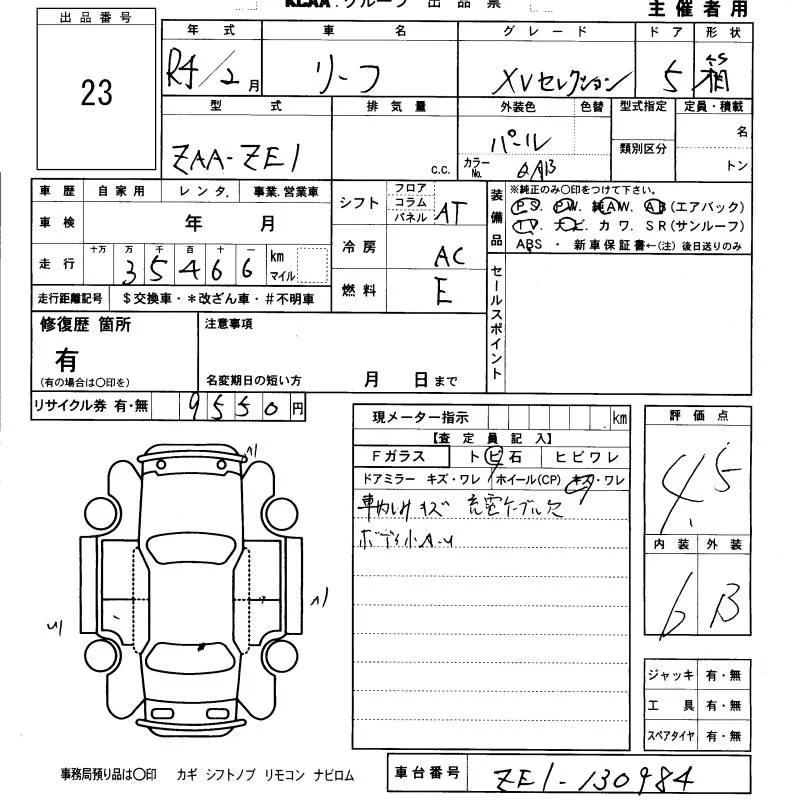 KCAA.グループ 出品票
主催者用
出品番号
23
年式 車名 グレード ドア 形状
R4/2月 リーフ XVセレクション 5 箱
型式 排気量 外装色 色替 型式指定 定員・積載
ZAA-ZE1 c.c. パール 類別区分 名
カラーNo. QAB トン
車歴 自家用 レンタ. 事業.営業車
車検 年 月
走行 十万 万 千 百 十 一 km マイル
35466
走行距離記号 $交換車・*改ざん車・#不明車
シフト フロア コラム パネル AT
冷房 AC
燃料 E
装備品 ※純正のみ〇印をつけて下さい。
PS. PW. 純AW. AB(エアバック)
TV. ナビ. カワ. SR(サンルーフ)
ABS ・ 新車保証書←(注) 後日送りのみ
セールスポイント
修復歴 箇所
有
(有の場合は〇印を)
注意事項
名変期日の短い方 月 日まで
リサイクル券 有・無 9550円
現メーター指示 km
【査定員記入】
Fガラス トビ石 ヒビワレ
ドアミラー キズ・ワレ ホイール(CP) キズ・ワレ
キズ 充電ケーブル欠
ボディ小A-U
評価点
4.5
内装 外装
6 B
ジャッキ 有・無
工具 有・無
スペアタイヤ 有・無
事務局預り品は〇印 カギ シフトノブ リモコン ナビロム
車台番号 ZE1-130984